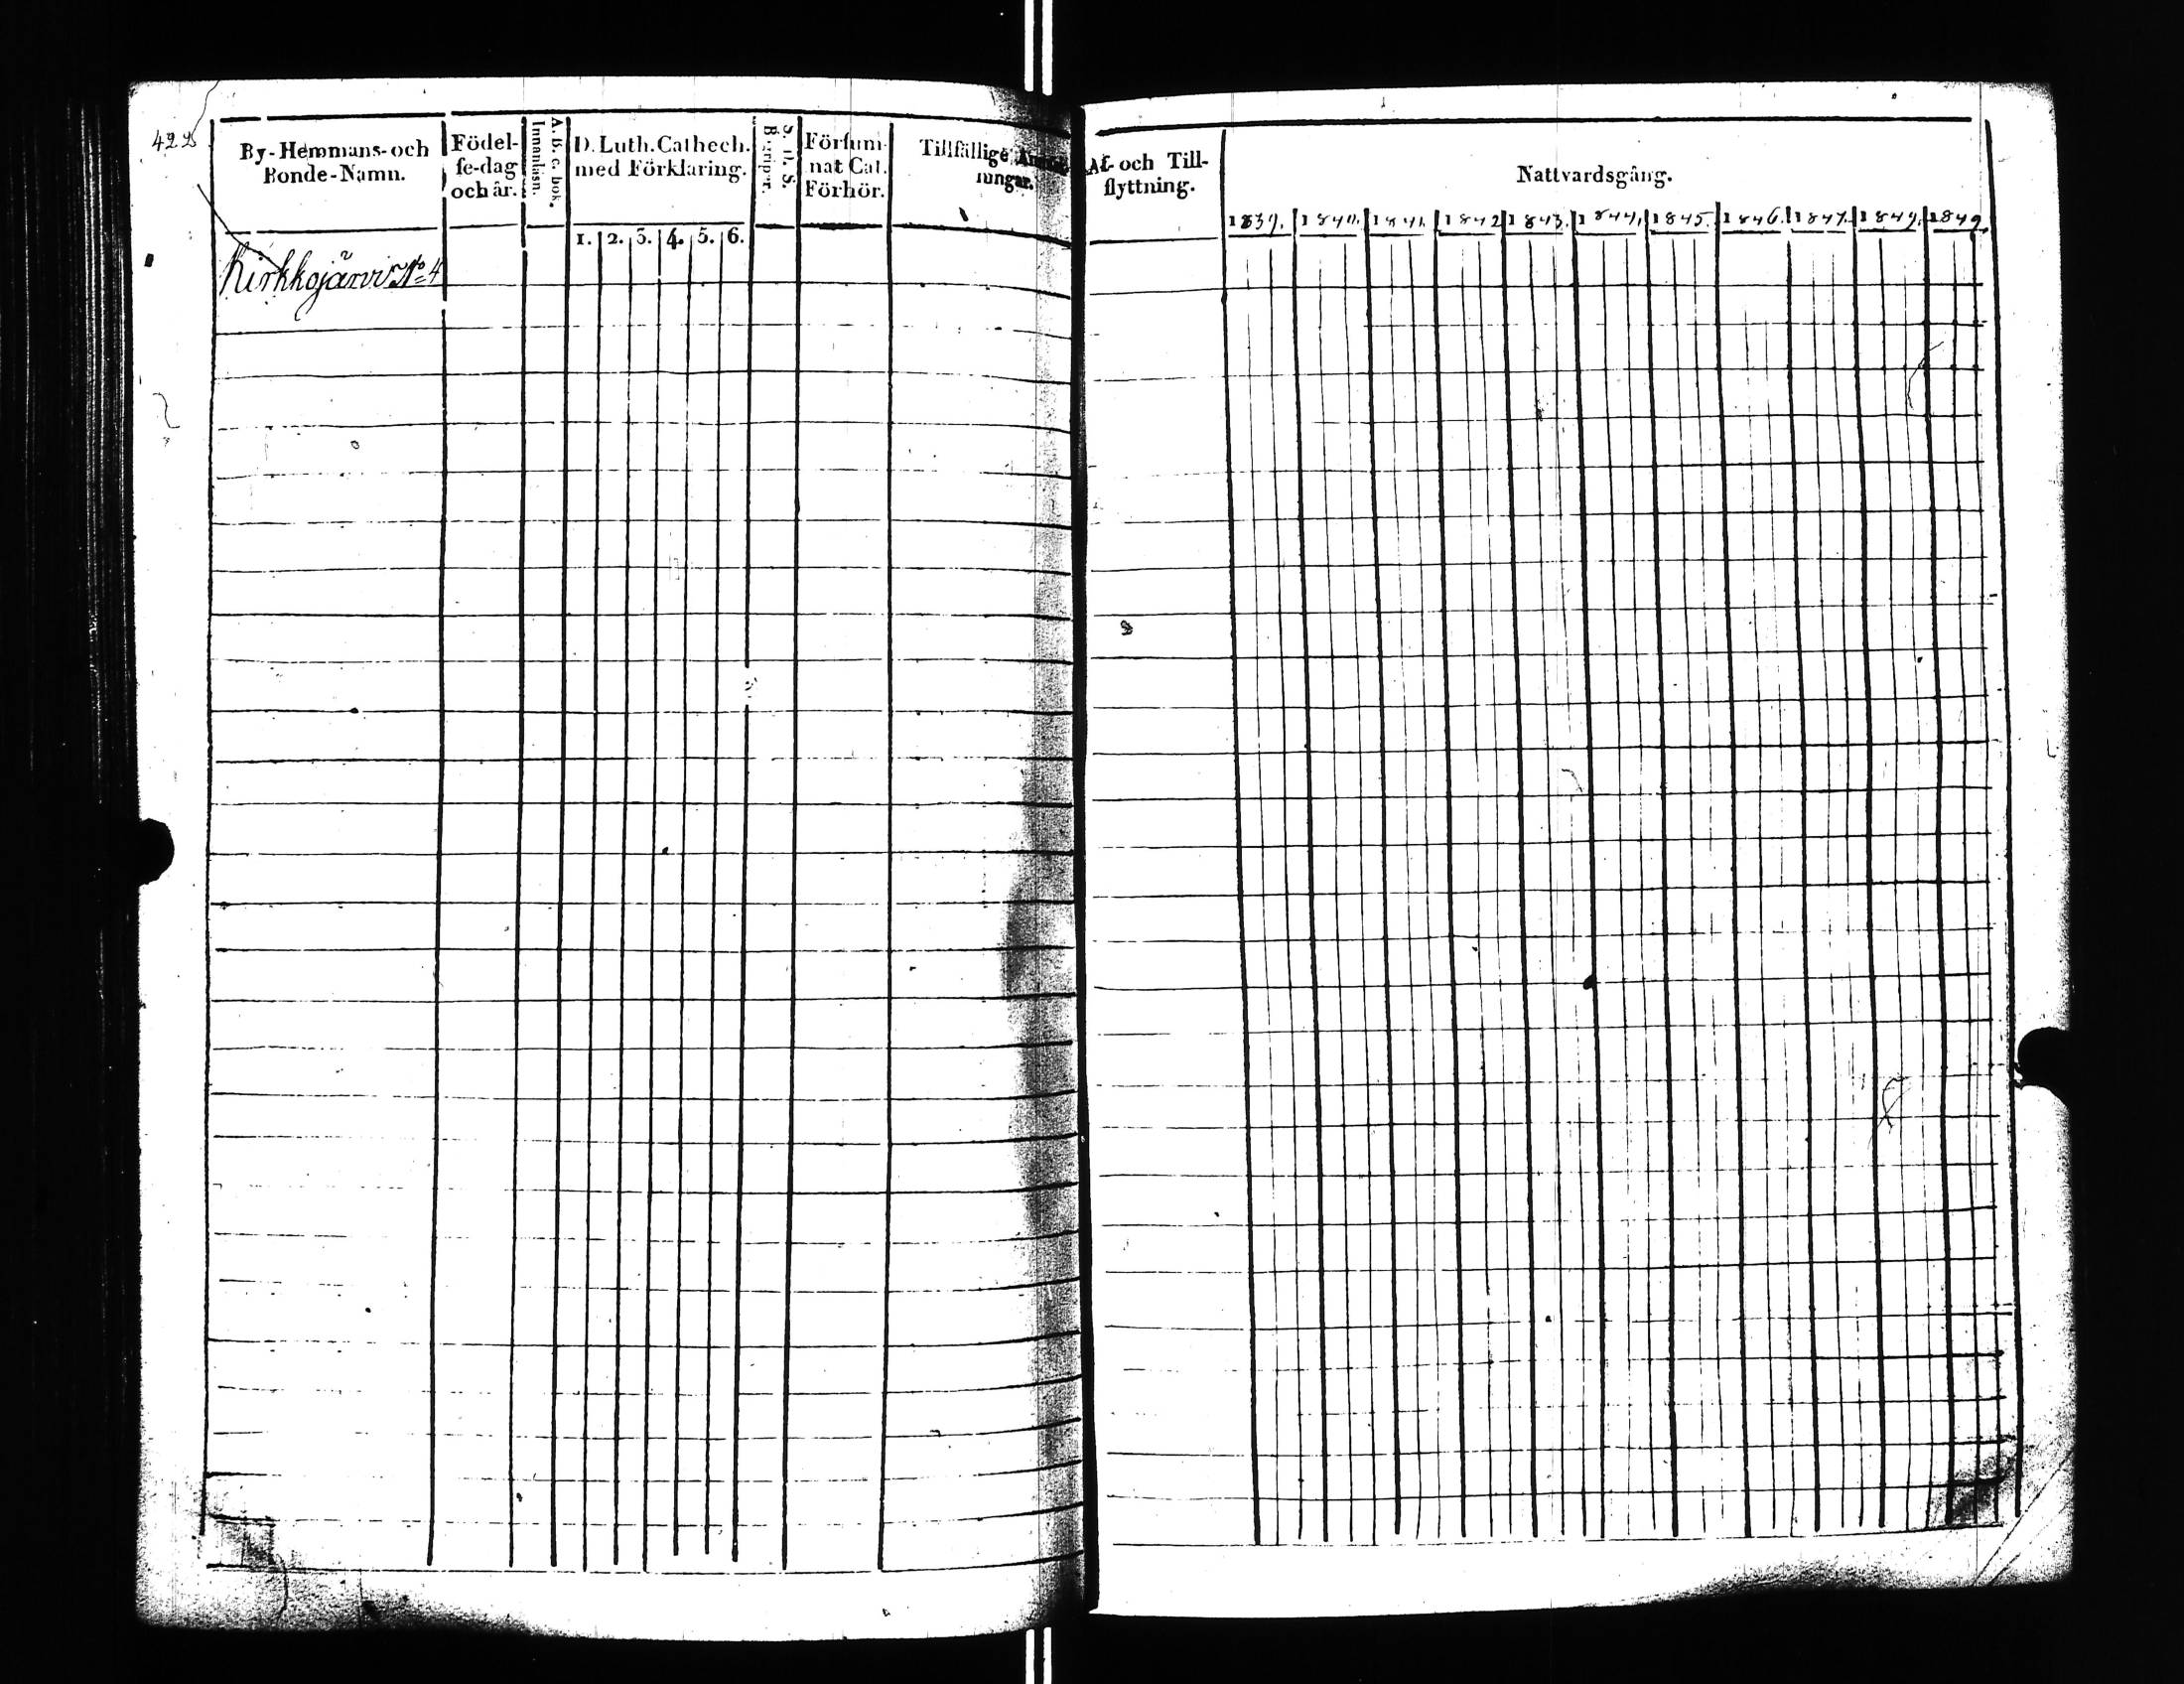 422
By-Hemmans-och
Bonde-Namn.
Födel-
se-dag
och år.
A. B. c. bok.
Innanläsn.
D. Luth. Cathech.
med Förklaring.
1. 2. 3. 4. 5. 6.
S. H. S.
Begriper.
Försum-
nat Cat.
Förhör.
Tillfällige
Kirkkojärvi No 4
Af- och Till-
flyttning.
Nattvardsgång.
1839. 1840. 1841. 1842 1843. 1844. 1845. 1846. 1847. 1849